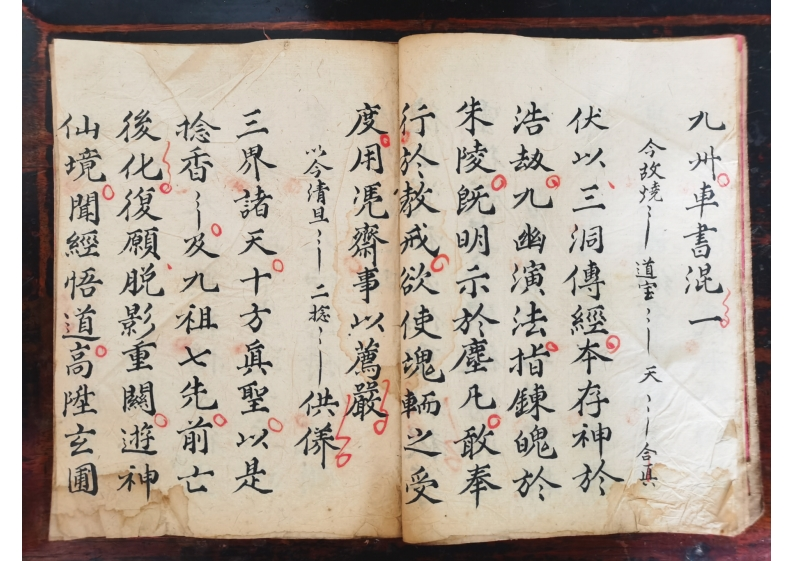 九州車書混一
今故燒〻〻道宝〻〻天〻〻合真
伏以三洞傳經本存神於
浩劫九幽演法指鍊魄於
朱陵既明示於塵凡敢奉
行於教戒欲使塊輀之受
度用凴齋事以薦嚴
以今清旦〻〻二捻〻〻供儀
三界諸天十方眞聖以是
捻香〻〻及九祖七先前亡
後化復願脱影重關遊神
仙境聞經悟道高陞玄圃